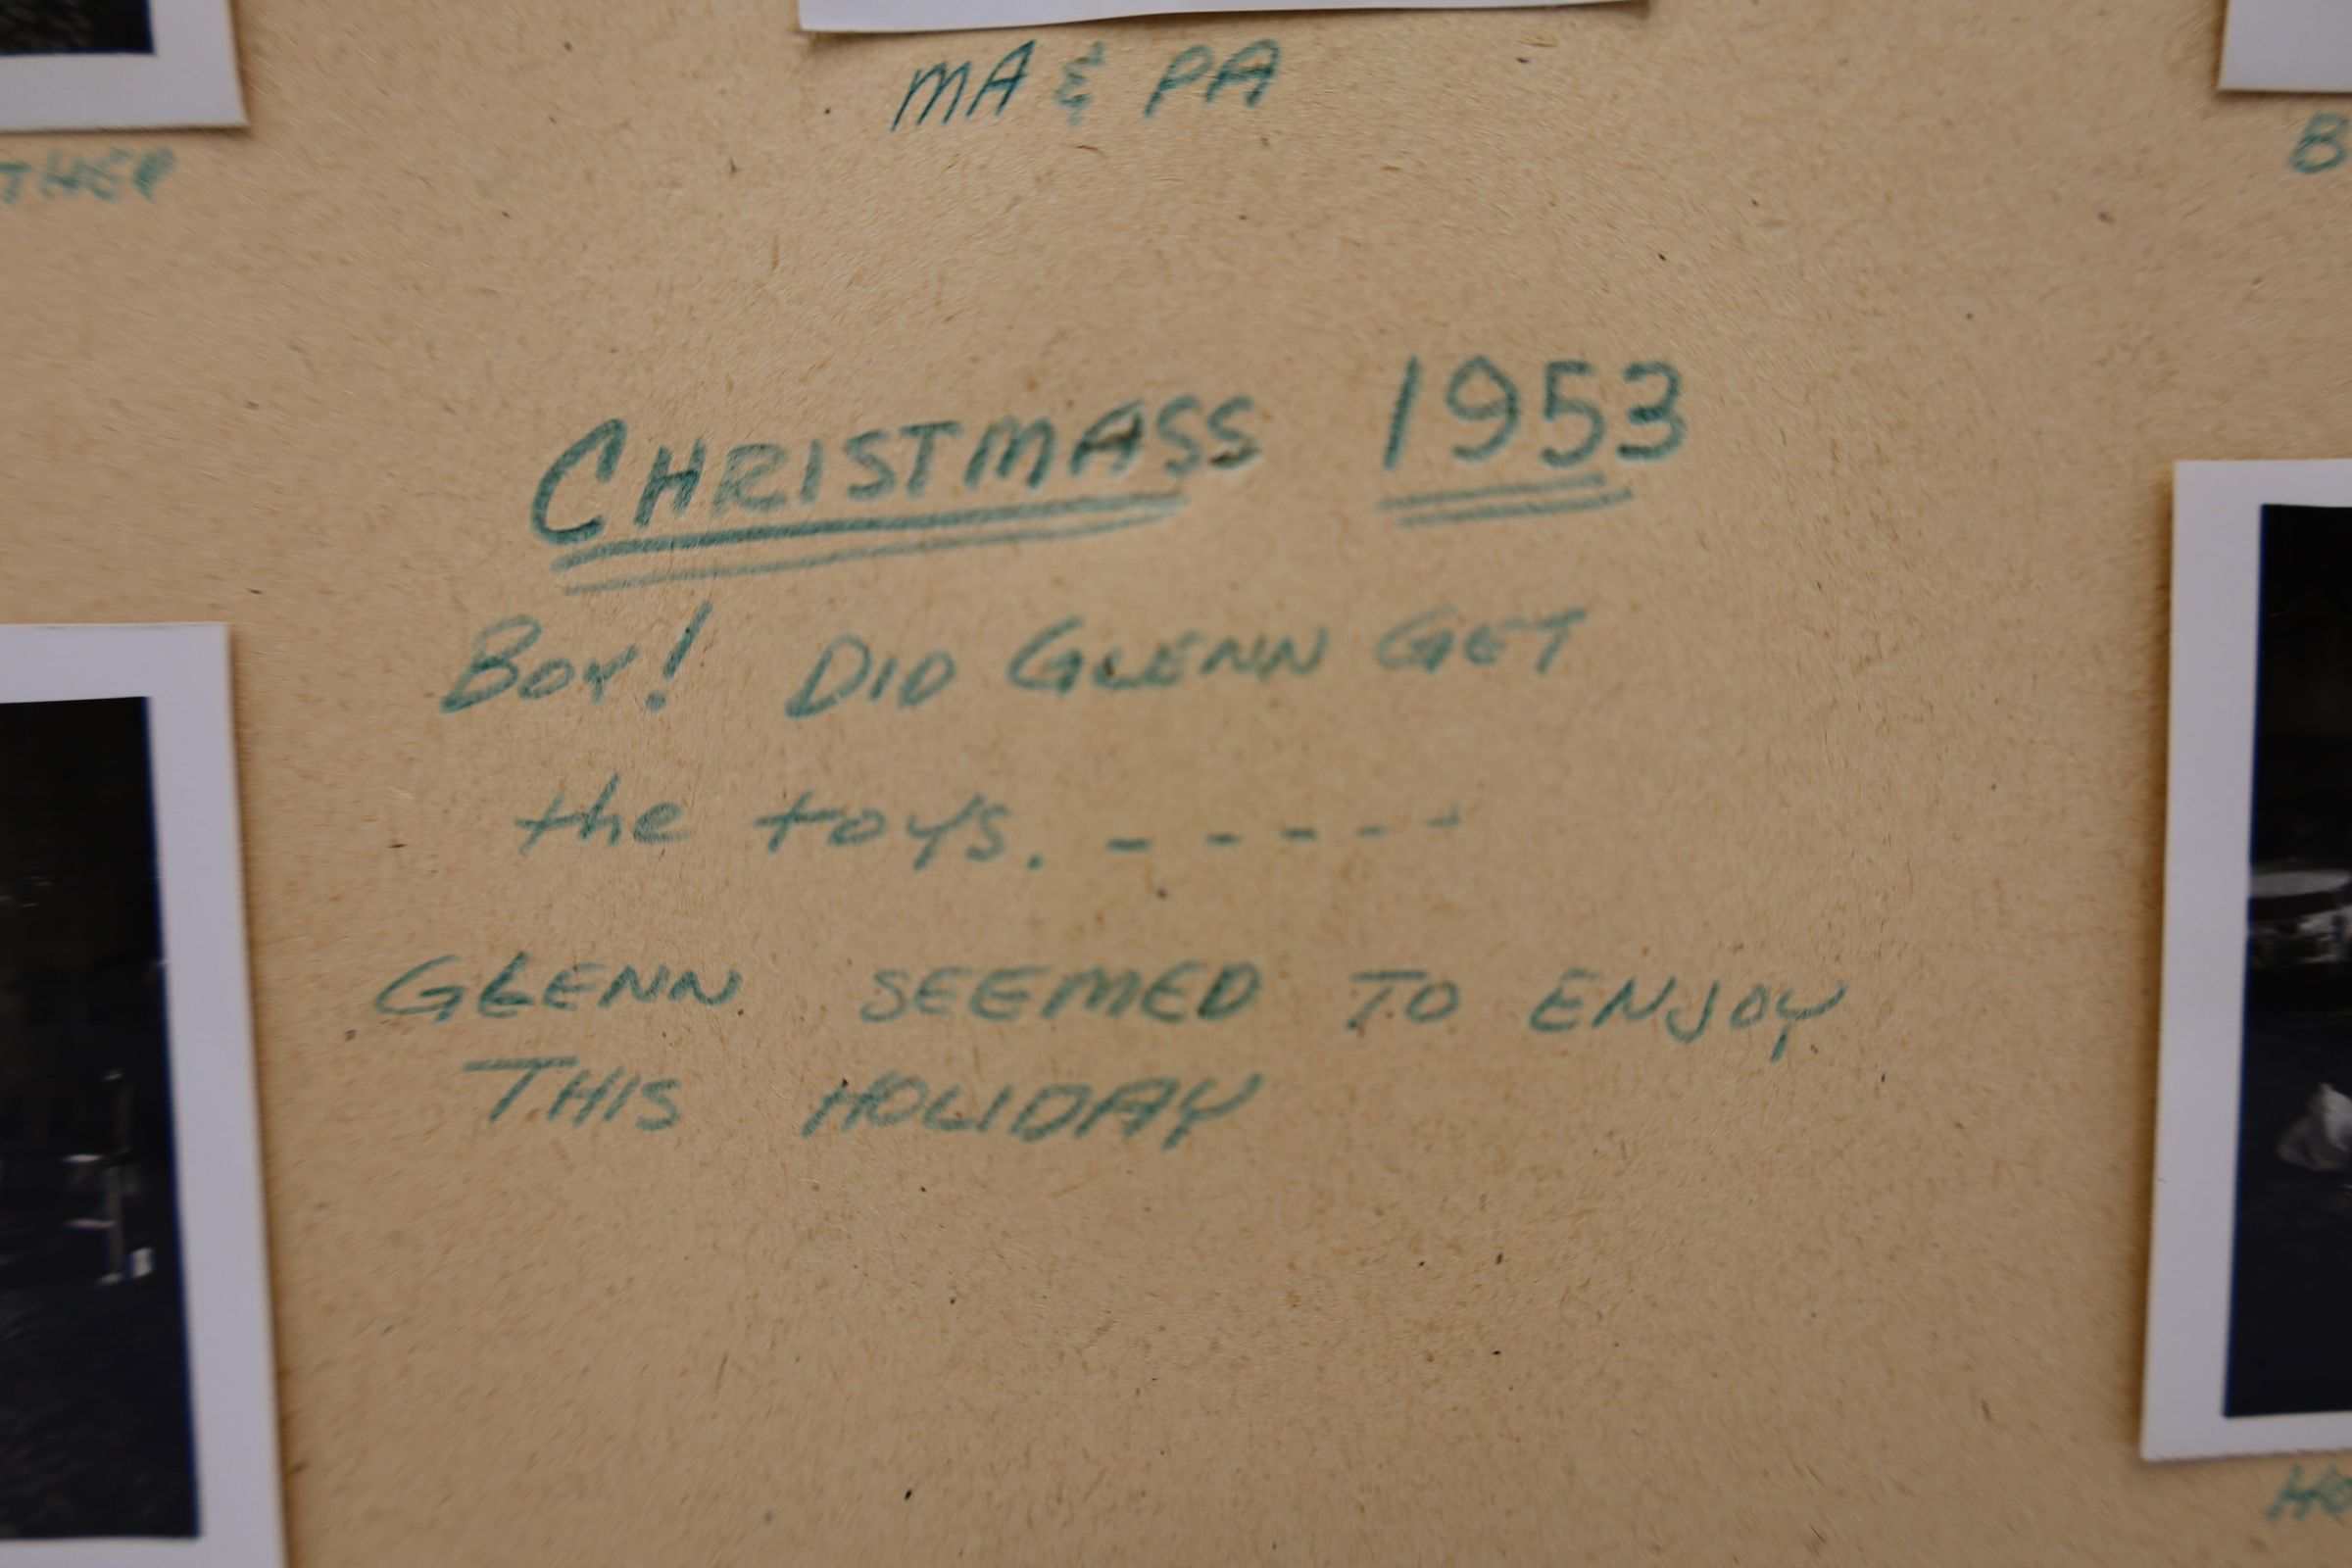 MA & PA
THER
B
CHRISTMASS 1953
BOY! DID GLENN GET
the toys. - - - - -
GLENN SEEMED TO ENJOY
THIS HOLIDAY